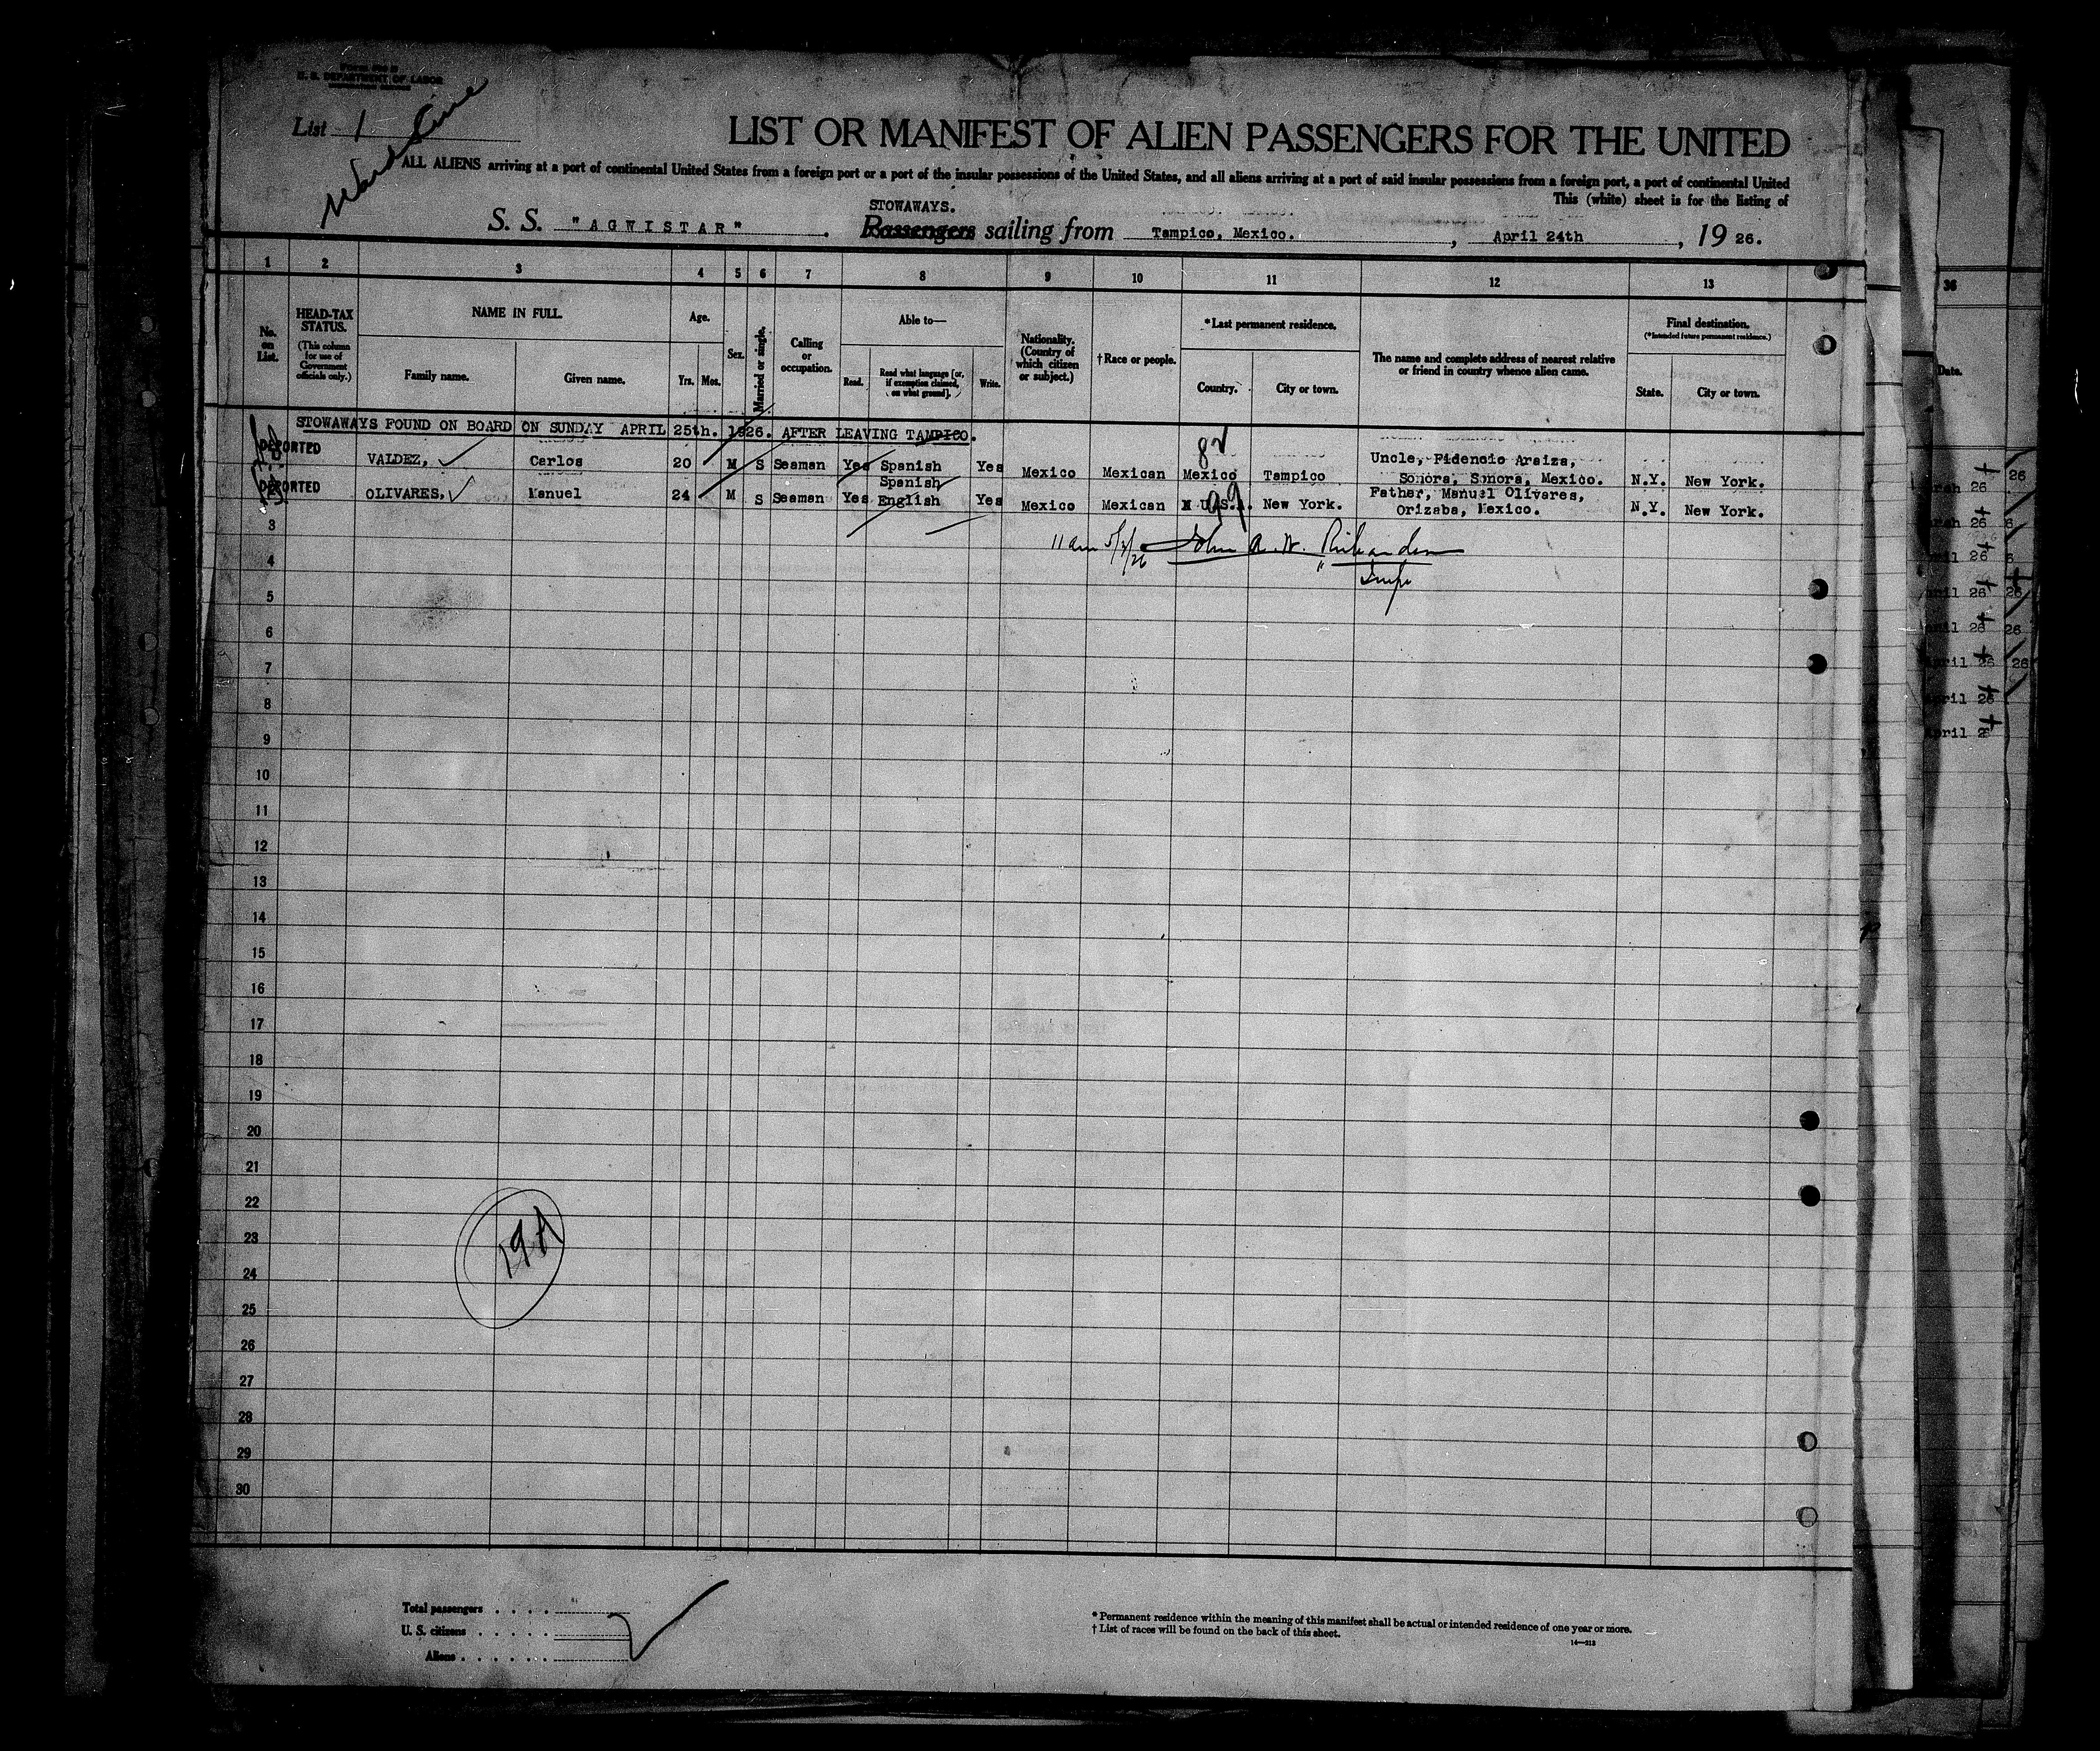 U. S. DEPARTMENT OF LABOR
List 1
Ward Line
LIST OR MANIFEST OF ALIEN PASSENGERS FOR THE UNITED
ALL ALIENS arriving at a port of continental United States from a foreign port or a port of the insular possessions of the United States, and all aliens arriving at a port of said insular possessions from a foreign port, a port of continental United
This (white) sheet is for the listing of
STOWAWAYS.
S. S. "AGWISTAR" . Passengers sailing from Tampico, Mexico. , April 24th , 19 26.
1 2 3 4 5 6 7 8 9 10 11 12 13
No. on List.
HEAD-TAX STATUS.
(This column for use of Government officials only.)
NAME IN FULL.
Family name. Given name.
Age.
Yrs. Mos.
Sex.
Married or single.
Calling or occupation.
Able to—
Read. Read what language [or, if exemption claimed, on what ground]. Write.
Nationality. (Country of which citizen or subject.)
† Race or people.
* Last permanent residence.
Country. City or town.
The name and complete address of nearest relative or friend in country whence alien came.
Final destination.
(* Intended future permanent residence.)
State. City or town.
STOWAWAYS FOUND ON BOARD ON SUNDAY APRIL 25th. 1926. AFTER LEAVING TAMPICO.
DEPORTED VALDEZ, Carlos 20 M S Seaman Yes Spanish Yes Mexico Mexican Mexico Tampico Uncle, Fidencio Araiza, Sonora, Sonora, Mexico. N.Y. New York.
82
DEPORTED OLIVARES, Manuel 24 M S Seaman Yes Spanish English Yes Mexico Mexican U.S. New York. Father, Manuel Olivares, Orizaba, Mexico. N.Y. New York.
99
11 am 5/3/26 John A. W. Richardson
Insp
3
4
5
6
7
8
9
10
11
12
13
14
15
16
17
18
19
20
21
22
23
24
25
26
27
28
29
30
19A
Total passengers
U. S. citizens
Aliens
* Permanent residence within the meaning of this manifest shall be actual or intended residence of one year or more.
† List of races will be found on the back of this sheet.
14—213
36
Date.
26
26
26 6
26 6
April 26 26
April 26 26
April 26 26
April 26
April 26